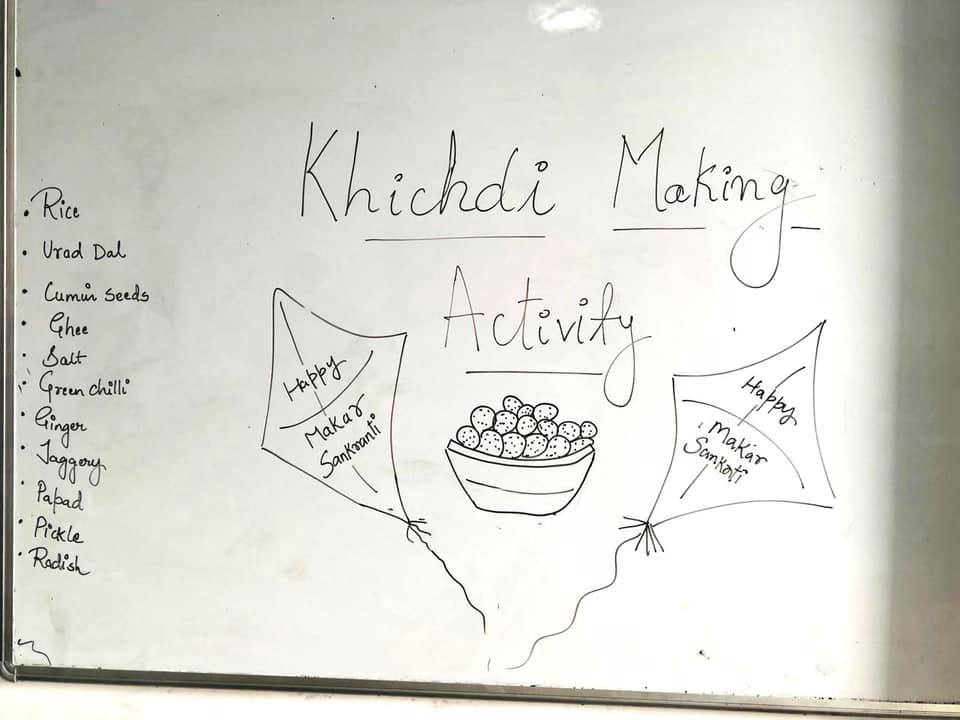 Khichdi Making
Activity
• Rice
• Urad Dal
• Cumin seeds
• Ghee
• Salt
• Green chilli
• Ginger
• Jaggery
• Papad
• Pickle
• Radish
Happy
Makar
Sankranti
Happy
Makar
Sankrati